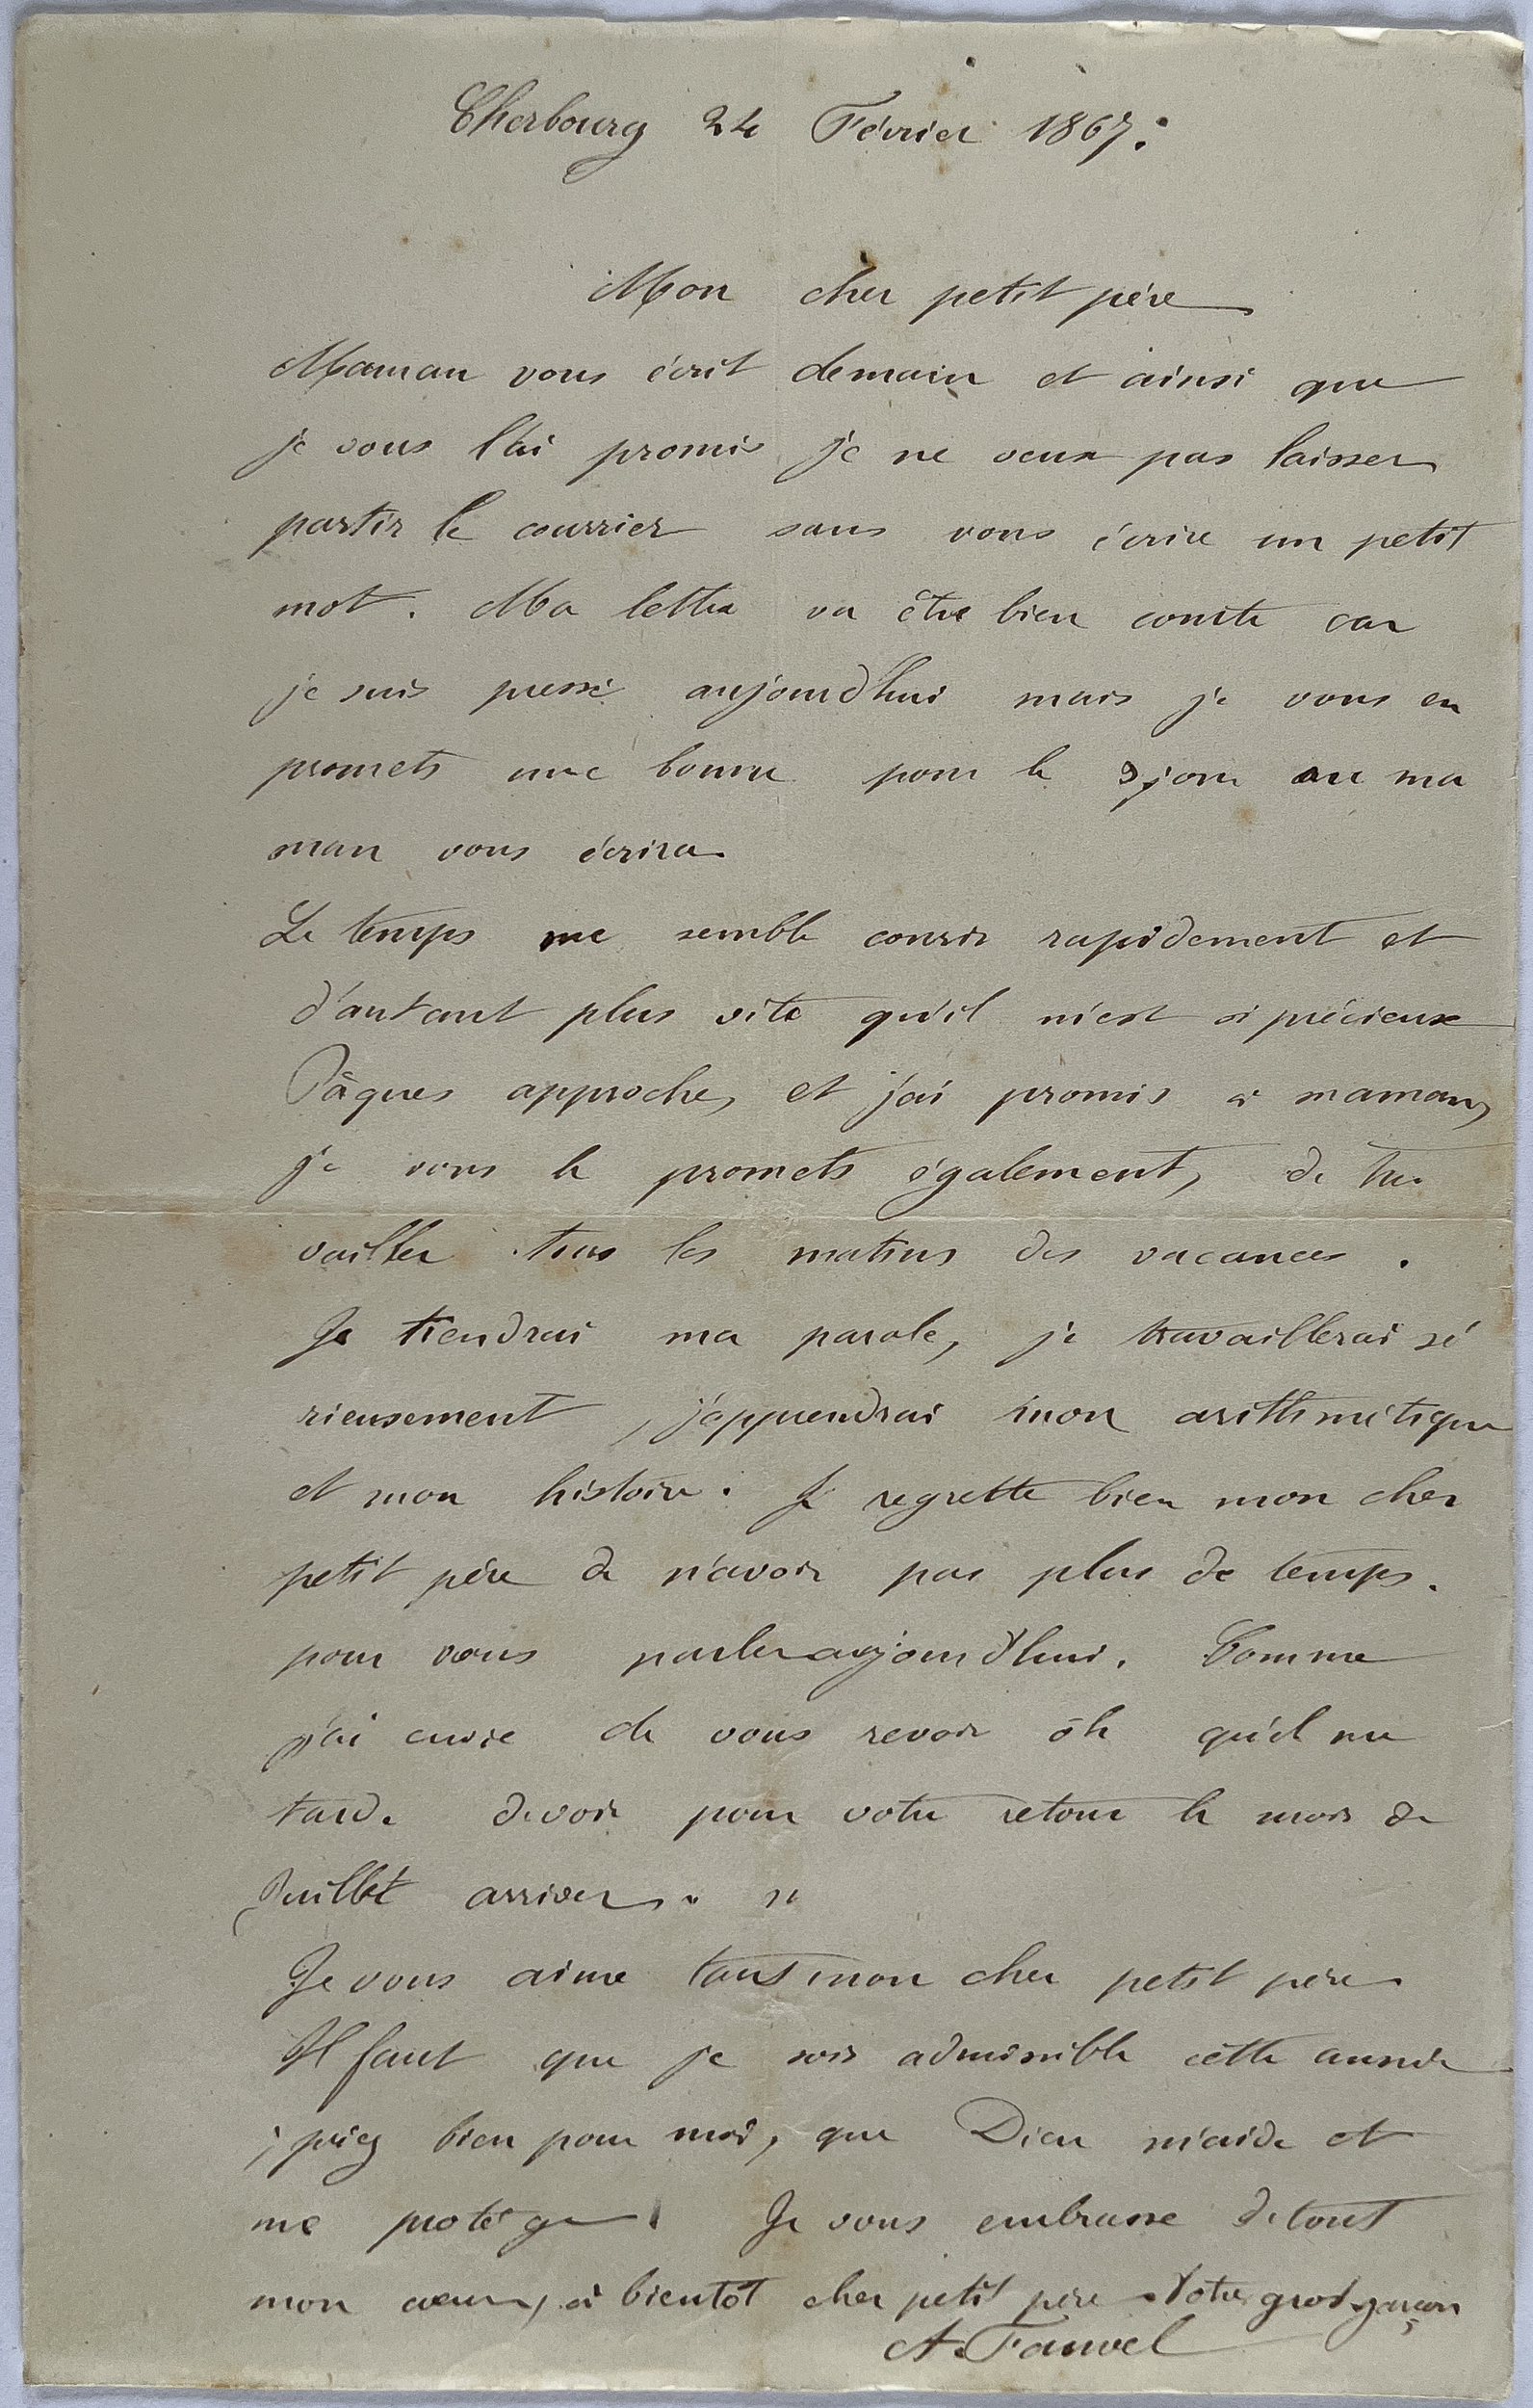 Cherbourg 24 Février 1867.
Mon cher petit père
Maman vous écrit demain et ainsi que
je vous l'ai promis je ne veux pas laisser
partir le courrier sans vous écrire un petit
mot. Ma lettre va être bien courte car
je suis pressé aujourd'hui mais je vous en
promets une bonne pour le jour ou ma
man vous écrira
Le temps me semble courir rapidement et
d'autant plus vite qu'il m'est si précieux
Pâques approche, et j'ai promis à maman,
je vous le promets également, de tra
vailler tous les matins des vacances.
Je tiendrai ma parole, je travaillerai sé
rieusement, j'apprendrai mon arithmétique
et mon histoire. Je regrette bien mon cher
petit père de n'avoir pas plus de temps.
pour vous parler aujourd'hui. Comme
j'ai envie de vous revoir oh qu'il me
tarde de voir pour votre retour le mois de
Juillet arriver. "
Je vous aime tant mon cher petit père
Il faut que je sois admissible cette année
, priez bien pour moi, que Dieu m'aide et
me protège! Je vous embrasse de tout
mon cœur, à bientôt cher petit père Votre gros garçon
A. Fauvel